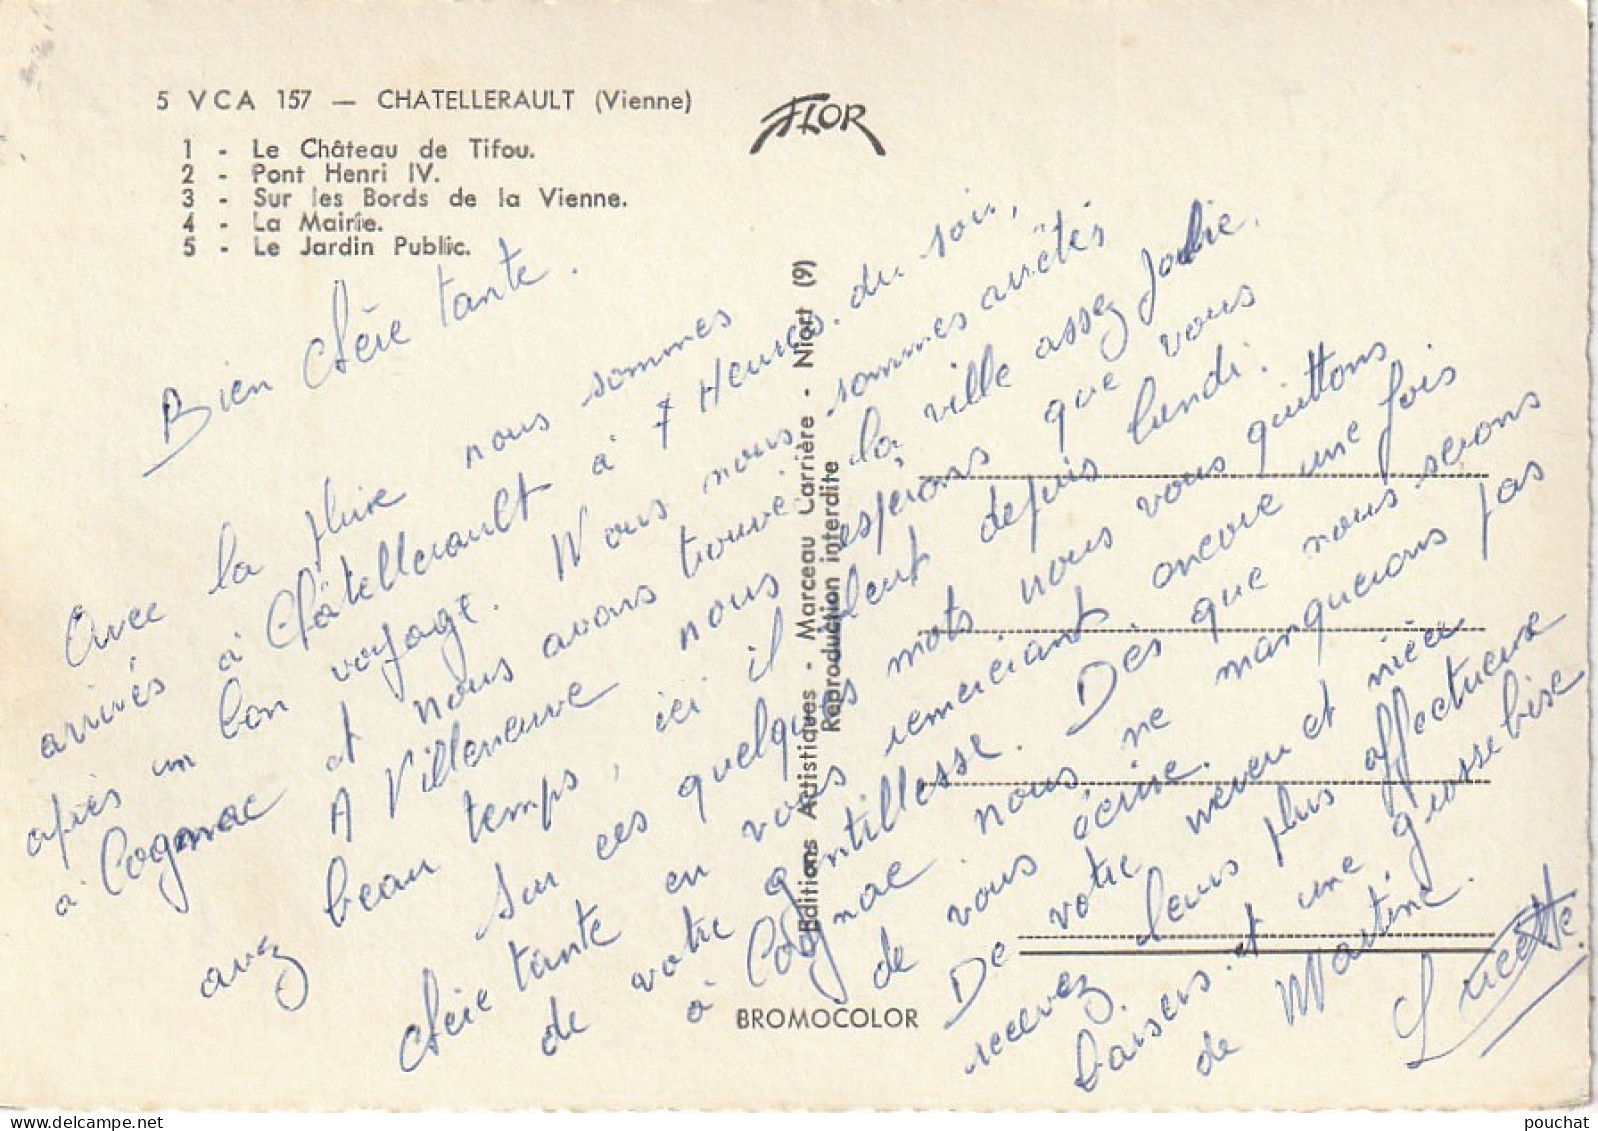 5 VCA 157 — CHATELLERAULT (Vienne)
1 - Le Château de Tifou.
2 - Pont Henri IV.
3 - Sur les Bords de la Vienne.
4 - La Mairie.
5 - Le Jardin Public.
FLOR
Editions Artistiques - Marceau Carrière - Niort (9)
Reproduction interdite
BROMOCOLOR
Bien chère tante.
Avec la pluie nous sommes
arrivés à Châtellerault à 7 Heures. du soir,
après un bon voyage. Nous nous sommes arrêtés
à Cognac et nous avons trouvé la ville assez Jolie.
A Villeneuve nous espérons que vous
avez beau temps, ici il pleut depuis lundi.
Sur ces quelques mots, nous vous quittons
chère tante en vous remerciant encore une fois
de votre gentillesse. Dès que nous serons
à Cognac nous ne manquerons pas
de vous écrire.
De votre neveu et nièce
recevez leurs plus affectueux
baisers. et une grosse bise
de Martine.
Lucette.
pouchat